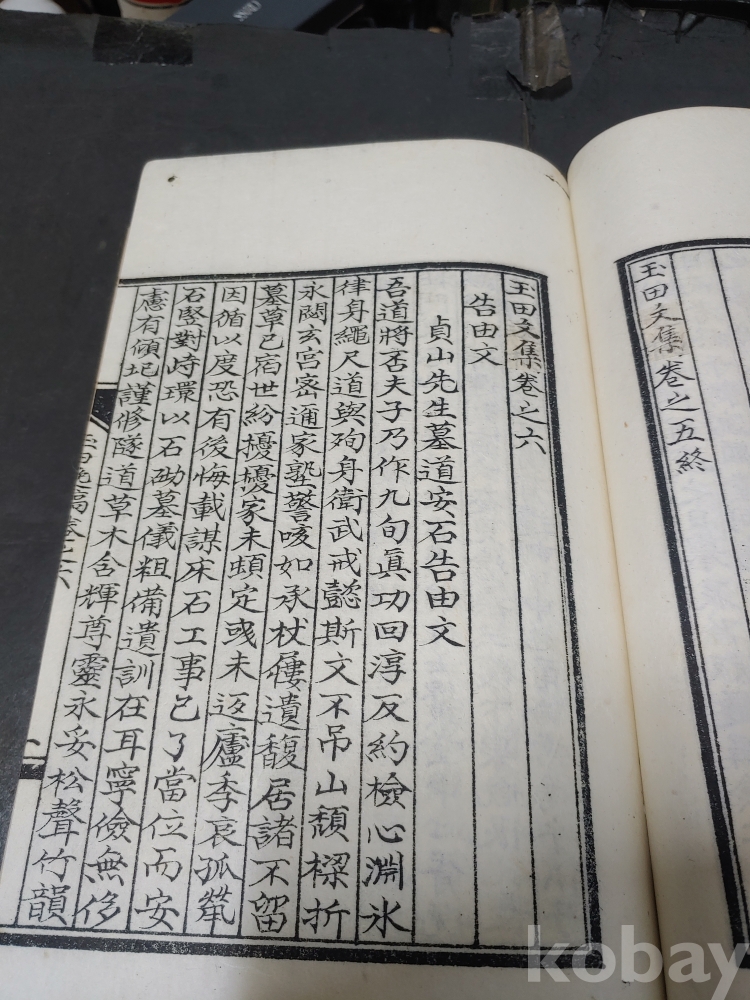 玉田文集卷之五終
玉田文集卷之六
告由文
貞山先生墓道安石告由文
吾道將否夫子乃作九旬眞功回淳反約檢心淵氷
律身繩尺道與殉身衛武戒懿斯文不吊山頹樑折
永閟玄宮密邇家塾警咳如承杖屨遺馥居諸不留
墓草已宿世紛擾擾家未頓定或未返廬季哀孤煢
因循以度恐有後悔載謀床石工事已了當位而安
石竪對峙環以石砌墓儀粗備遺訓在耳寧儉無侈
慮有傾圮謹修隧道草木含輝尊靈永妥松聲竹韻
卷之六
一
kobay